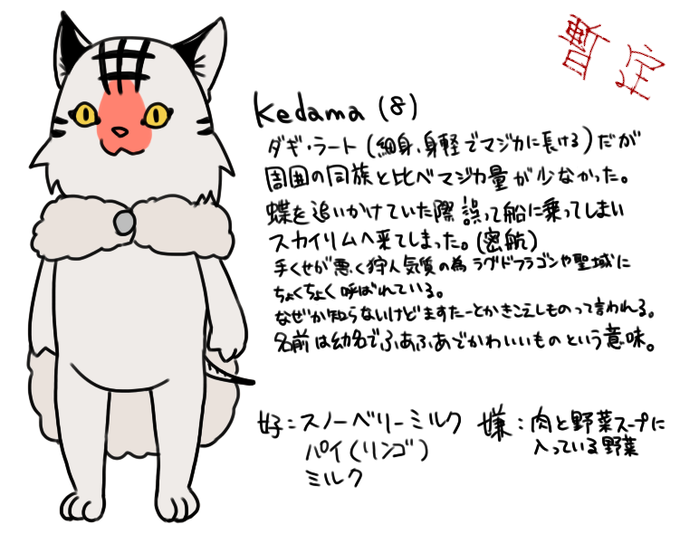 暫定
Kedama (8)
ダギ・ラート(細身、身軽でマジカに長ける)だが
周囲の同族と比べマジカ量が少なかった。
蝶を追いかけていた際誤って船に乗ってしまい
スカイリムへ来てしまった。(密航)
手くせが悪く狩人気質の為ラグドフラゴンや聖域に
ちょくちょく呼ばれている。
なぜか知らないけどますたーとかきこえしものって言われる。
名前は幼名でふあふあでかわいいものという意味。
好:スノーベリーミルク
パイ(リンゴ)
ミルク
嫌:肉と野菜スープに
入っている野菜